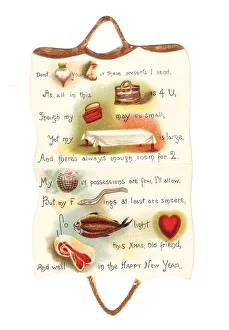 Dont you at these presents I send,
As all in this is 4 U,
Though my may be small,
Yet my is large,
And theres always enough room for 2.
My possessions are few, I'll allow.
But my F ings at least are sincere,
So light
this Xmas, old friend,
And well in the Happy New Year.